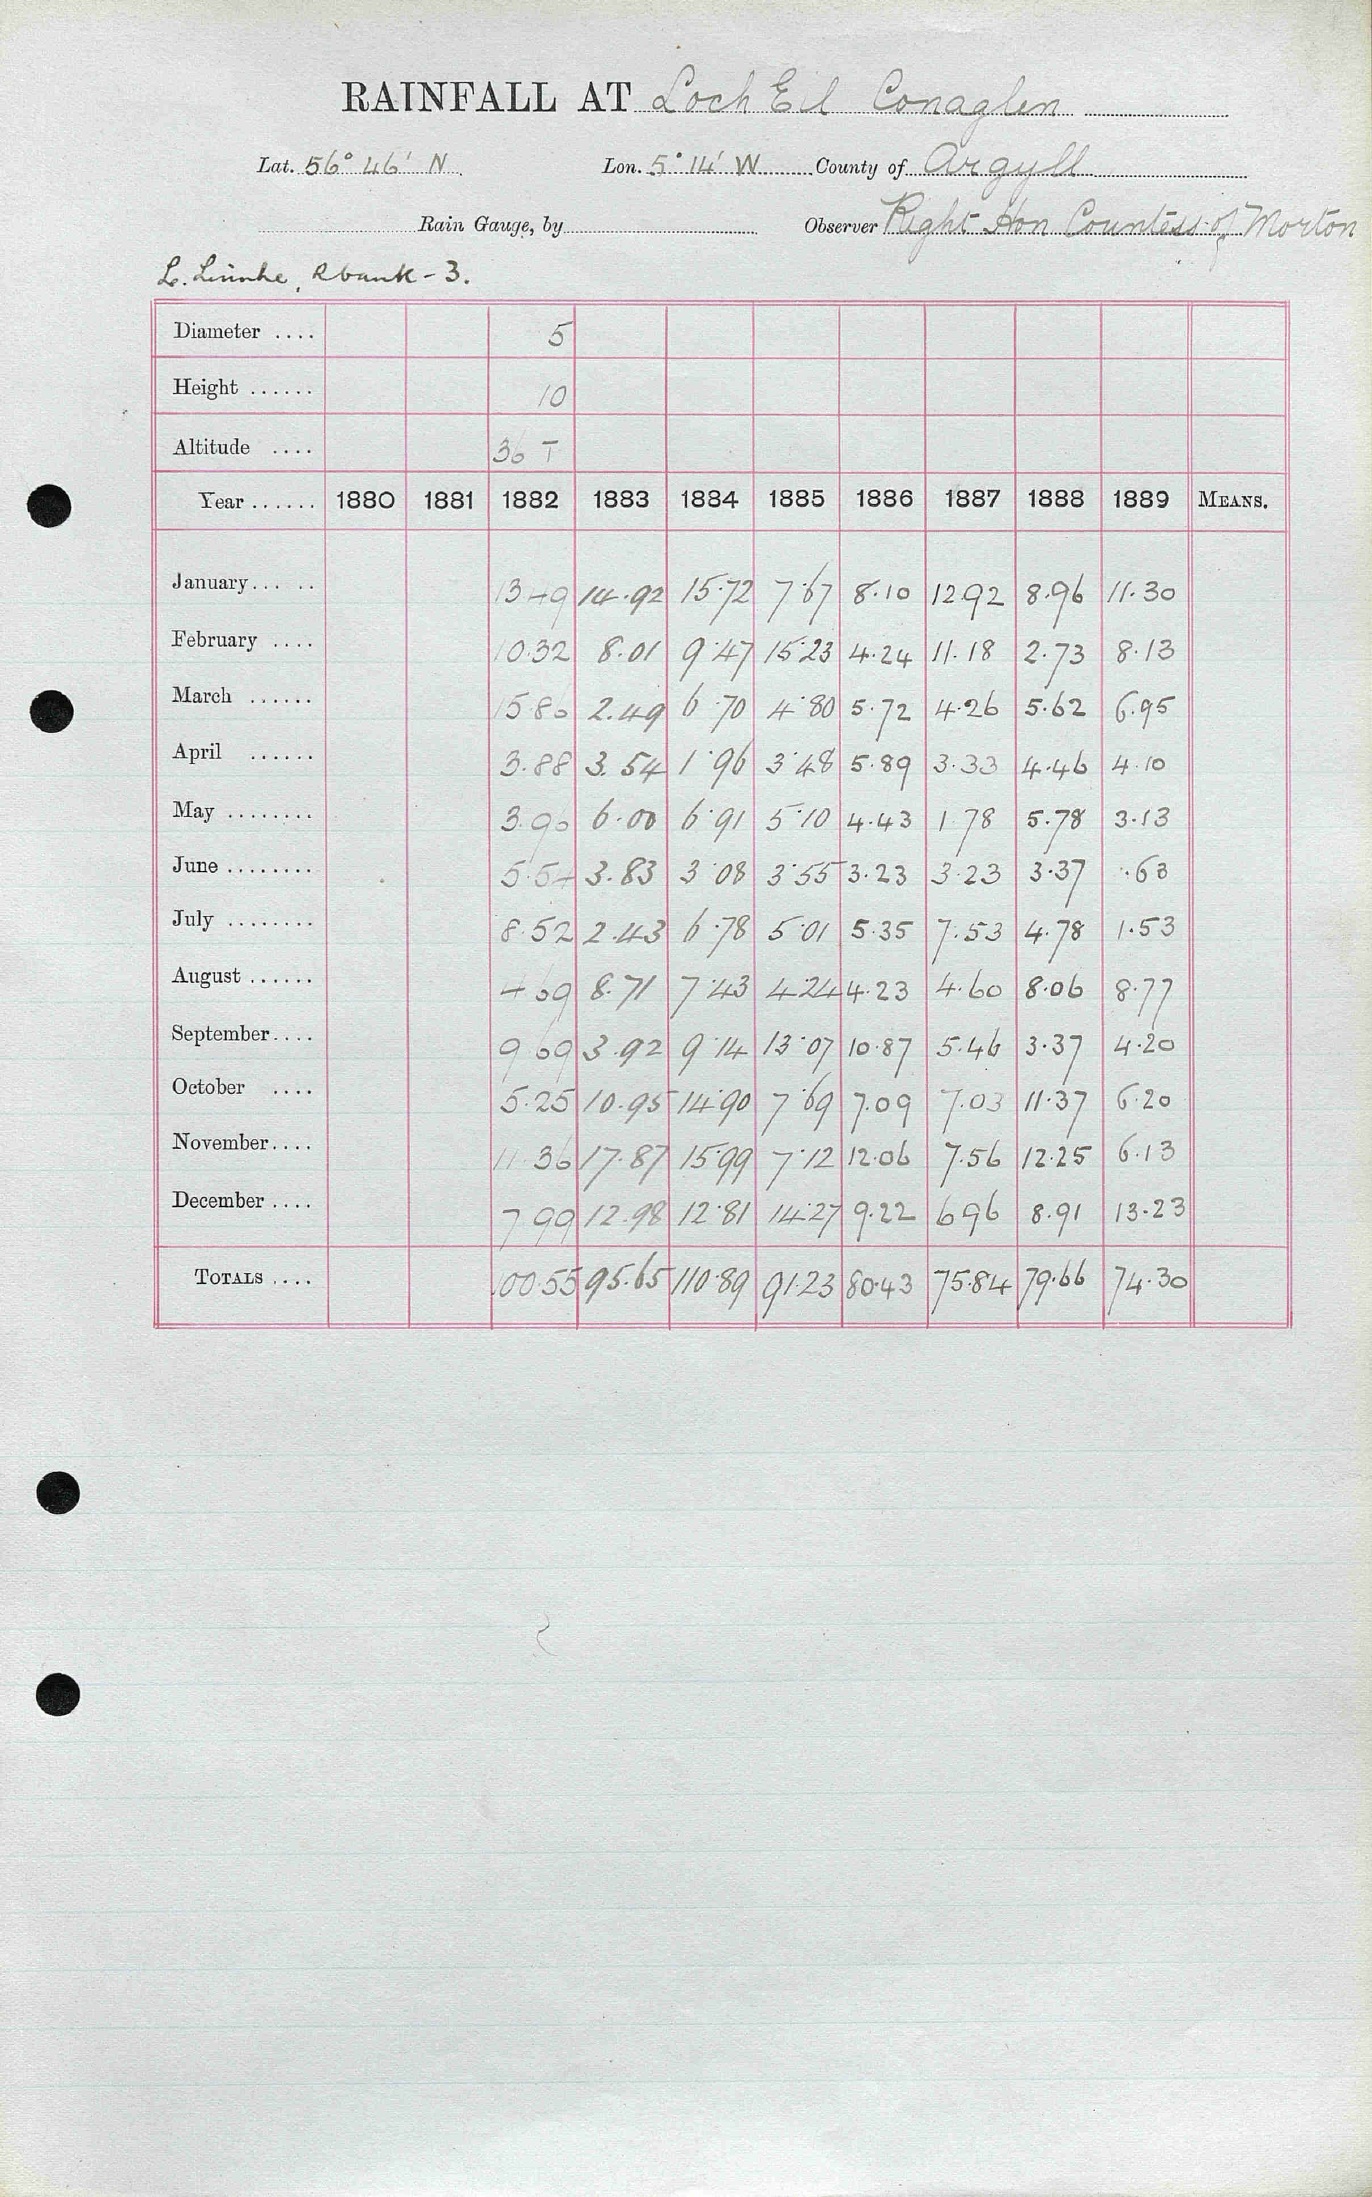 RAINFALL AT Loch Eil Conaglen
Lat. 56° 46' N Lon. 5° 14' W County of Argyll
Rain Gauge, by Observer Right Hon Countess of Morton
L. Linnhe, R bank - 3.
Diameter .... 5
Height ...... 10
Altitude .... 36 T
Year ...... 1880 1881 1882 1883 1884 1885 1886 1887 1888 1889 MEANS.
January... .. 13.49 14.92 15.72 7.67 8.10 12.92 8.96 11.30
February .... 10.32 8.01 9.47 15.23 4.24 11.18 2.73 8.13
March ...... 15.86 2.49 6.70 4.80 5.72 4.26 5.62 6.95
April ...... 3.88 3.54 1.96 3.48 5.89 3.33 4.46 4.10
May ........ 3.96 6.00 6.91 5.10 4.43 1.78 5.78 3.13
June ........ 5.54 3.83 3.08 3.55 3.23 3.23 3.37 .63
July ........ 8.52 2.43 6.78 5.01 5.35 7.53 4.78 1.53
August ...... 4.69 8.71 7.43 4.24 4.23 4.60 8.06 8.77
September.... 9.69 3.92 9.14 13.07 10.87 5.46 3.37 4.20
October .... 5.25 10.95 14.90 7.69 7.09 7.03 11.37 6.20
November.... 11.36 17.87 15.99 7.12 12.06 7.56 12.25 6.13
December .... 7.99 12.98 12.81 14.27 9.22 6.96 8.91 13.23
TOTALS .... 100.55 95.65 110.89 91.23 80.43 75.84 79.66 74.30